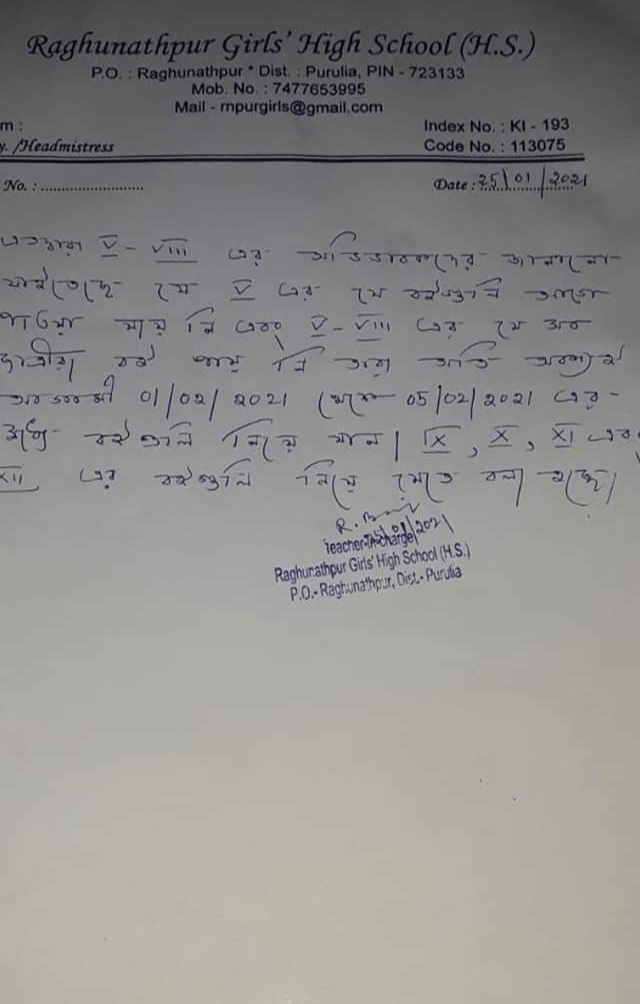 Raghunathpur Girls' High School (H.S.)
P.O. : Raghunathpur * Dist. : Purulia, PIN - 723133
Mob. No. : 7477653995
Mail - rnpurgirls@gmail.com
m :
y. /Headmistress
Index No. : KI - 193
Code No. : 113075
No. : ..........................
Date : 25/01/2021
এতদ্বারা V - VIII এর অভিভাবকদের জানানো
যাইতেছে যে V এর যে বইগুলি আগে
পাওয়া যায় নি এবং V - VIII এর যে সব
ছাত্রীরা বই পায় নি তারা অতি অবশ্যই
আগামী 01/02/2021 থেকে 05/02/2021 এর-
মধ্যে বইগুলি নিয়ে যান। IX, X, XI এবং
XII এর বইগুলি নিয়ে যেতে বলা হচ্ছে।
Teacher-In-charge
Raghunathpur Girls' High School (H.S.)
P.O.- Raghunathpur, Dist.- Purulia